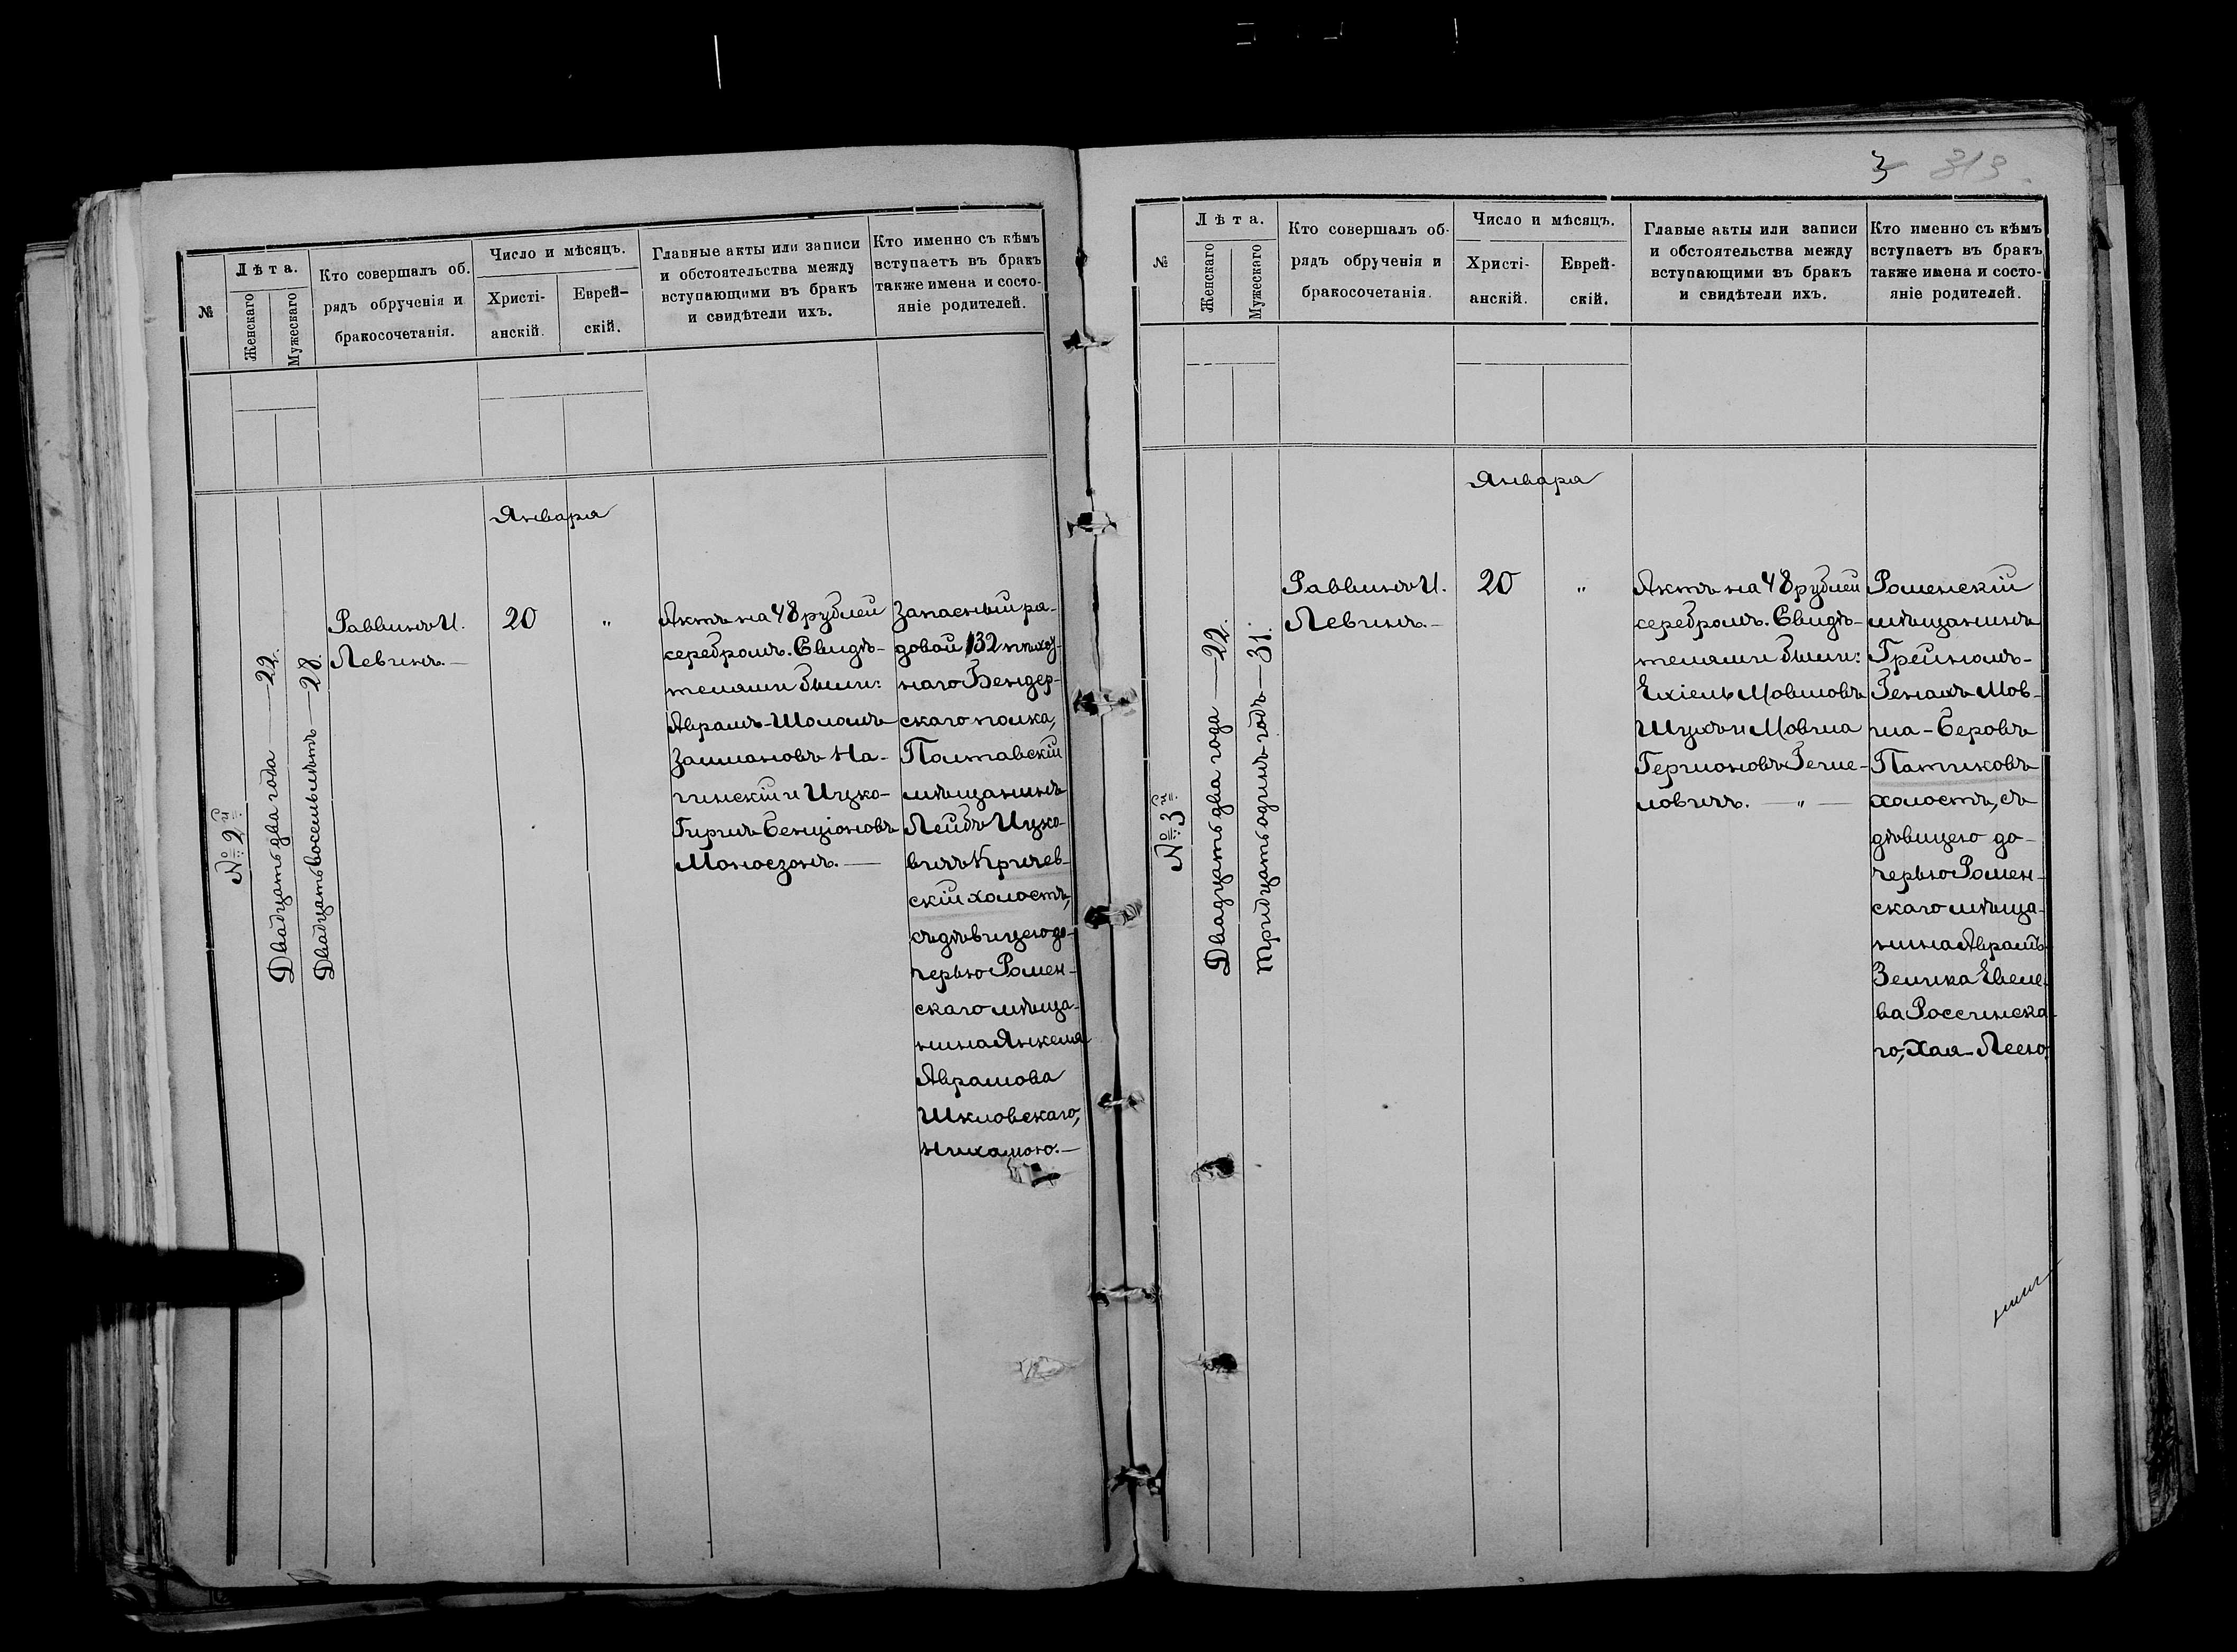 №
Лѣта.
Женскаго
Мужескаго
Кто совершалъ об-
рядъ обрученія и
бракосочетанія.
Число и мѣсяцъ.
Христі-
анскій.
Еврей-
скій.
Главные акты или записи
и обстоятельства между
вступающими въ бракъ
и свидѣтели ихъ.
Кто именно съ кѣмъ
вступаетъ въ бракъ
также имена и состо-
яніе родителей.
Января
№ 2й
Двадцать два года — 22.
Двадцать восемь лѣтъ — 28.
Раввинъ И.
Левинъ. —
20
"
Актъ на 48 рублей
серебромъ. Свидѣ-
телями были:
Абрамъ-Шоломъ
Залмановъ На-
гинскій и Ицко-
Гиршъ Бенціоновъ
Моносзонъ. —
Запасный ря-
довой 132 пѣхот-
наго Бендер-
скаго полка,
Полтавскій
мѣщанинъ
Лейбъ Ицко-
вичъ Кричев-
скій холостъ,
съ дѣвицею до-
черью Ромен-
скаго мѣща-
нина Янкеля
Абрамова
Шкловскаго,
Нихамою. —
3 313
№
Лѣта.
Женскаго
Мужескаго
Кто совершалъ об-
рядъ обрученія и
бракосочетанія.
Число и мѣсяцъ.
Христі-
анскій.
Еврей-
скій.
Главные акты или записи
и обстоятельства между
вступающими въ бракъ
и свидѣтели ихъ.
Кто именно съ кѣмъ
вступаетъ въ бракъ
также имена и состо-
яніе родителей.
Января
№ 3й
Двадцать два года — 22.
Тридцать одинъ годъ — 31.
Раввинъ И.
Левинъ. —
20
"
Актъ на 48 рублей
серебромъ. Свидѣ-
телями были:
Ехіель Мовшовъ
Шукъ и Мовша
Гершоновъ Геше-
ловичъ. — " —
Роменскій
мѣщанинъ
Грейномъ-
Генахъ Мов-
ша-Беровъ
Патиковъ
холостъ, съ
дѣвицею до-
черью Ромен-
скаго мѣща-
нина Абрамъ-
Зелика Евеле-
ва Россинска-
го, Хая-Леею.